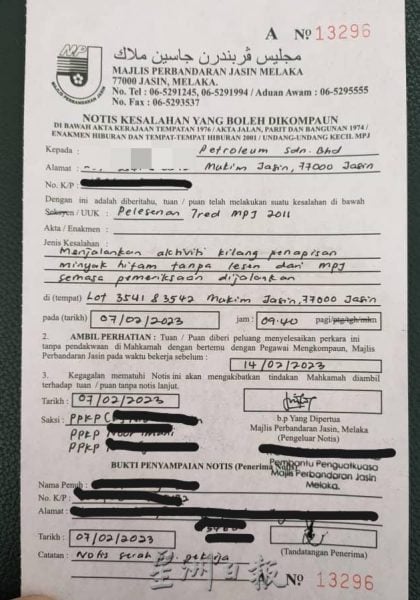 A Nº 13296
مجليس ڤربندرن جاسين ملاك
MAJLIS PERBANDARAN JASIN MELAKA
77000 JASIN, MELAKA.
No. Tel : 06-5291245, 06-5291994 / Aduan Awam : 06-5295555
No. Fax : 06-5293537
MPJ
MAJLIS PERBANDARAN JASIN
NOTIS KESALAHAN YANG BOLEH DIKOMPAUN
DI BAWAH AKTA KERAJAAN TEMPATAN 1976 / AKTA JALAN, PARIT DAN BANGUNAN 1974 /
ENAKMEN HIBURAN DAN TEMPAT-TEMPAT HIBURAN 2001 / UNDANG-UNDANG KECIL MPJ
Kepada : Petroleum Sdn. Bhd
Alamat : Mukim Jasin, 77000 Jasin
No. K/P :
Dengan ini adalah diberitahu, tuan / puan telah melakukan suatu kesalahan di bawah
Seksyen / UUK : Pelesenan Tred MPJ 2011
Akta / Enakmen :
Jenis Kesalahan :
Menjalankan aktiviti kilang penapisan
minyak hitam tanpa lesen dari MPJ
semasa pemeriksaan dijalankan
di (tempat) Lot 3541 & 3542 Mukim Jasin, 77000 Jasin
pada (tarikh) : 07/02/2023 jam : 09.40 pagi/ptg/tgh/mlm
2. AMBIL PERHATIAN : Tuan / Puan diberi peluang menyelesaikan perkara ini
tanpa pendakwaan di Mahkamah dengan bertemu dengan Pegawai Mengkompaun, Majlis
Perbandaran Jasin pada waktu bekerja sebelum : 14/02/2023
3. Kegagalan mematuhi Notis ini akan mengakibatkan tindakan Mahkamah diambil
terhadap tuan / puan tanpa notis lanjut.
Tarikh : 07/02/2023
Saksi : PPKP
PPKP
PPKP
b.p Yang Dipertua
Majlis Perbandaran Jasin, Melaka
(Pengeluar Notis)
Pembantu Penguatkuasa
Majlis Perbandaran Jasin
Melaka.
BUKTI PENYAMPAIAN NOTIS (Penerima Notis)
Nama Penuh :
No. K/P :
Alamat :
Tarikh : 07/02/2023
(Tandatangan Penerima)
Catatan : Notis serah pekerja
星洲日报
A Nº 13296